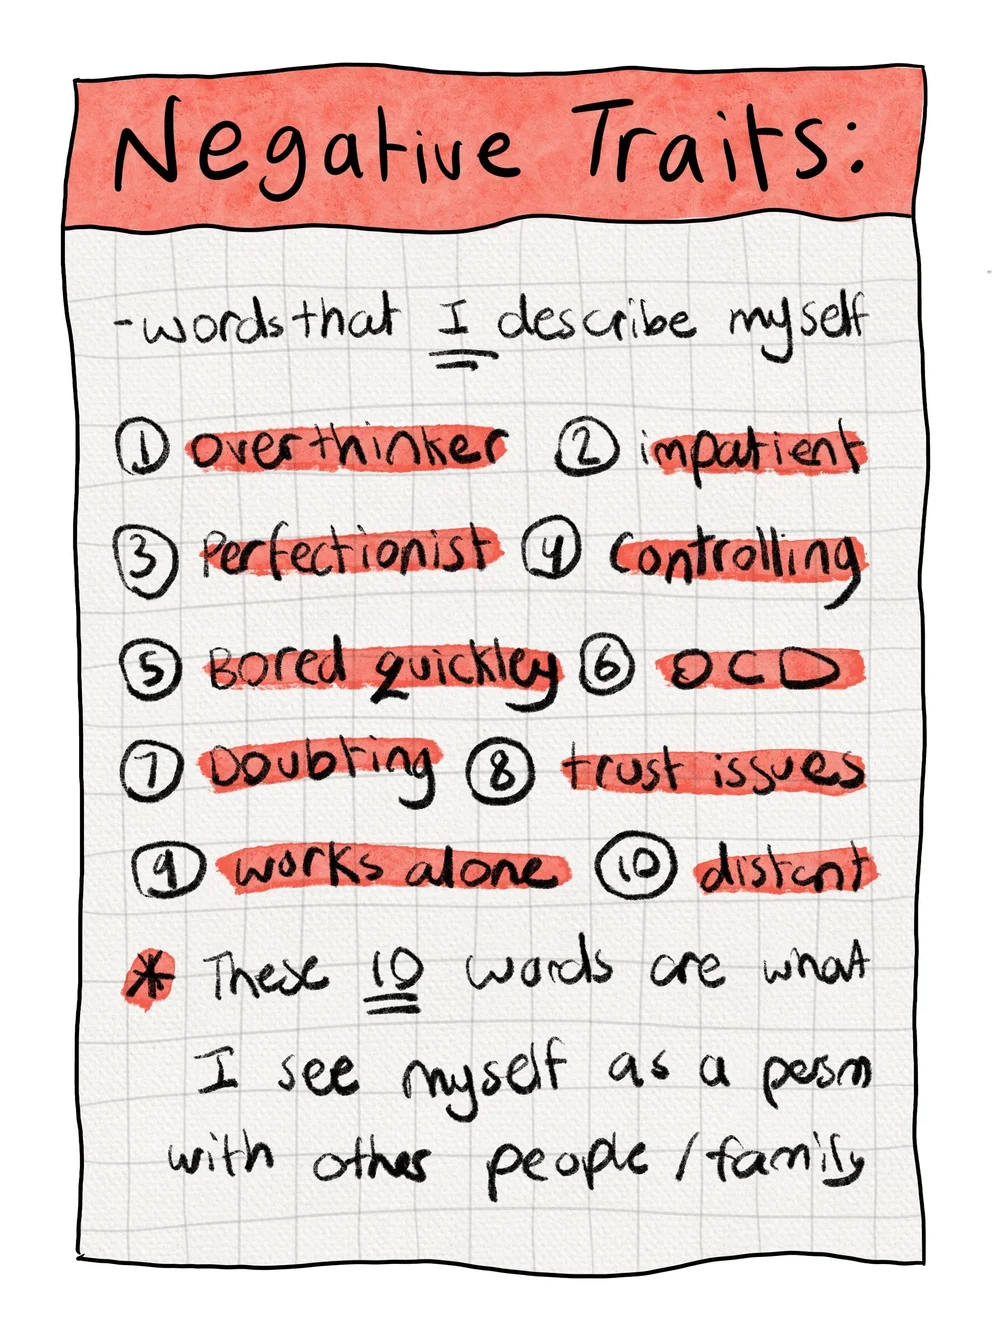 Negative Traits:
-words that I describe myself
① overthinker ② impatient
③ Perfectionist ④ Controlling
⑤ Bored quickley ⑥ OCD
⑦ Doubting ⑧ trust issues
⑨ works alone ⑩ distant
* These 10 words are what
I see myself as a person
with other people / family